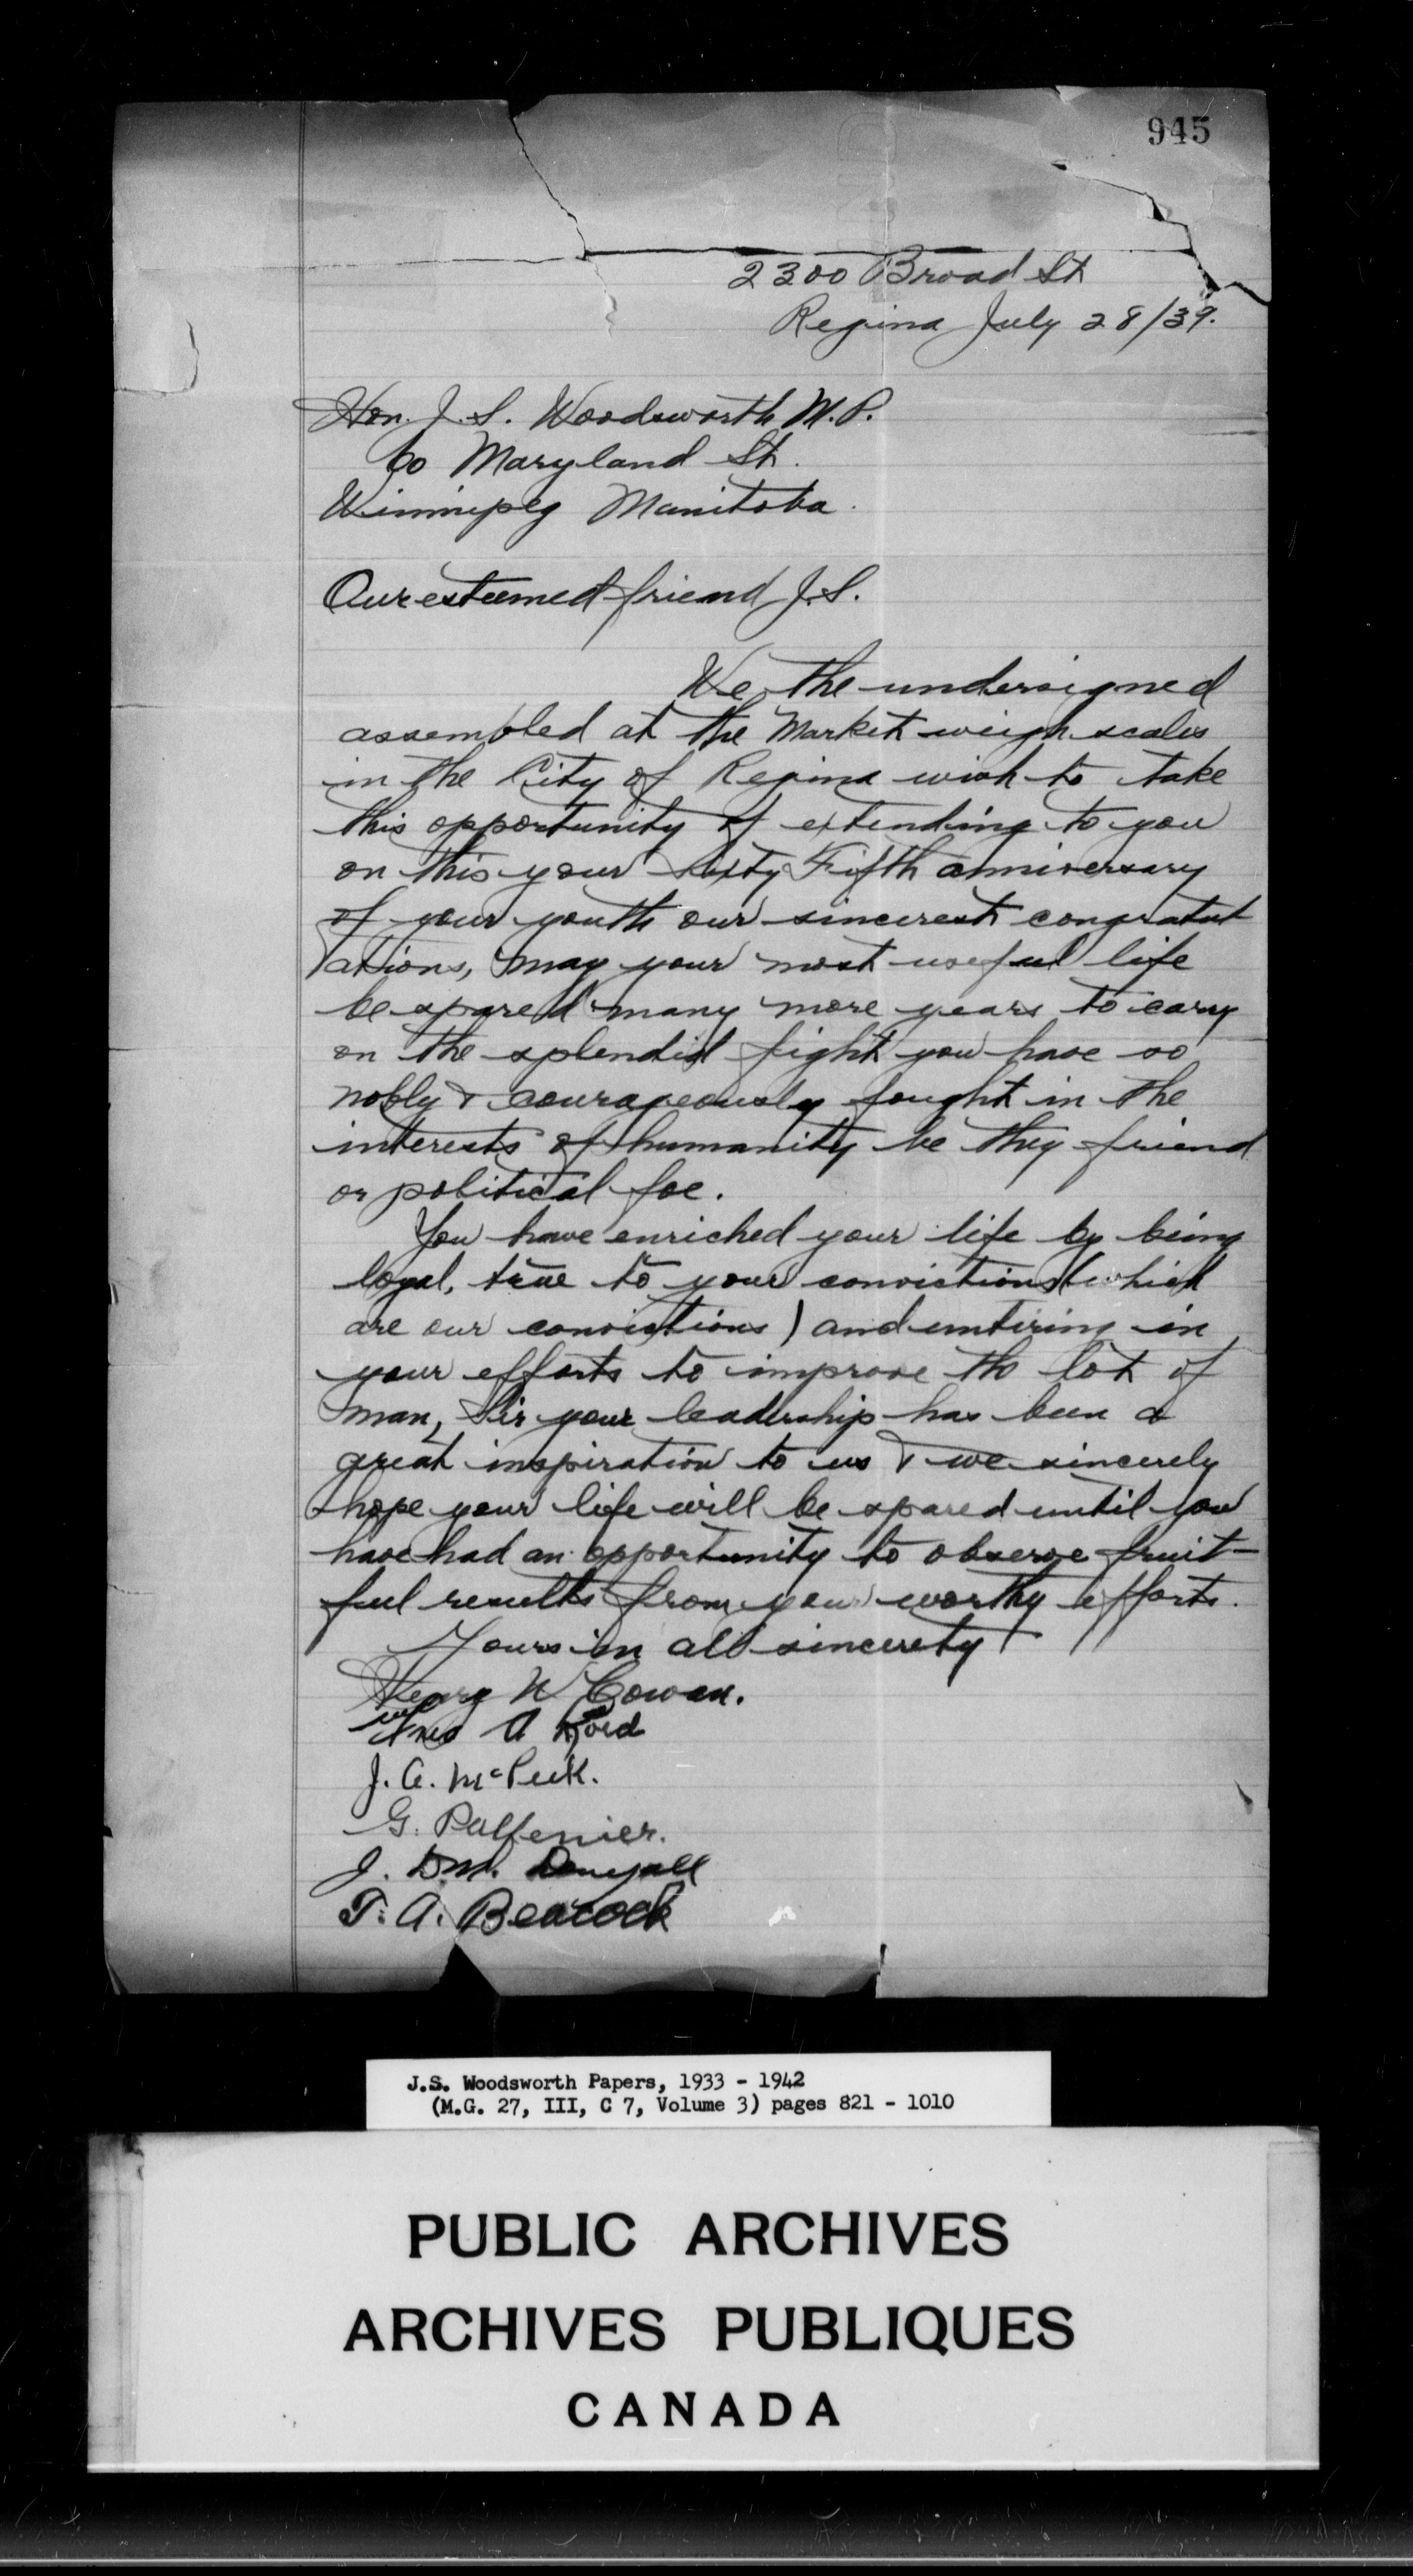 945
2300 Broad St
Regina July 28/39.
Hon. J. S. Woodsworth M.P.
60 Maryland St.
Winnipeg Manitoba.
Our esteemed friend J.S.
We the undersigned
assembled at the Market weigh scales
in the City of Regina wish to take
this opportunity of extending to you
on this your Sixty Fifth anniversary
of your youth our sincerest congratul
ations, may your most useful life
be spared many more years to carry
on the splendid fight you have so
nobly & courageously fought in the
interests of humanity be they friend
or political foe.
You have enriched your life by being
loyal, true to your convictions (which
are our convictions) and untiring in
your efforts to improve the lot of
man, Sir your leadership has been a
great inspiration to us & we sincerely
hope your life will be spared until you
have had an opportunity to observe fruit-
ful results from your worthy efforts.
Yours in all sincerity
W Cowan.
A Ford
J. A. McPeek.
G.
J.
T. A. Beacock
J.S. Woodsworth Papers, 1933 - 1942
(M.G. 27, III, C 7, Volume 3) pages 821 - 1010
PUBLIC ARCHIVES
ARCHIVES PUBLIQUES
CANADA